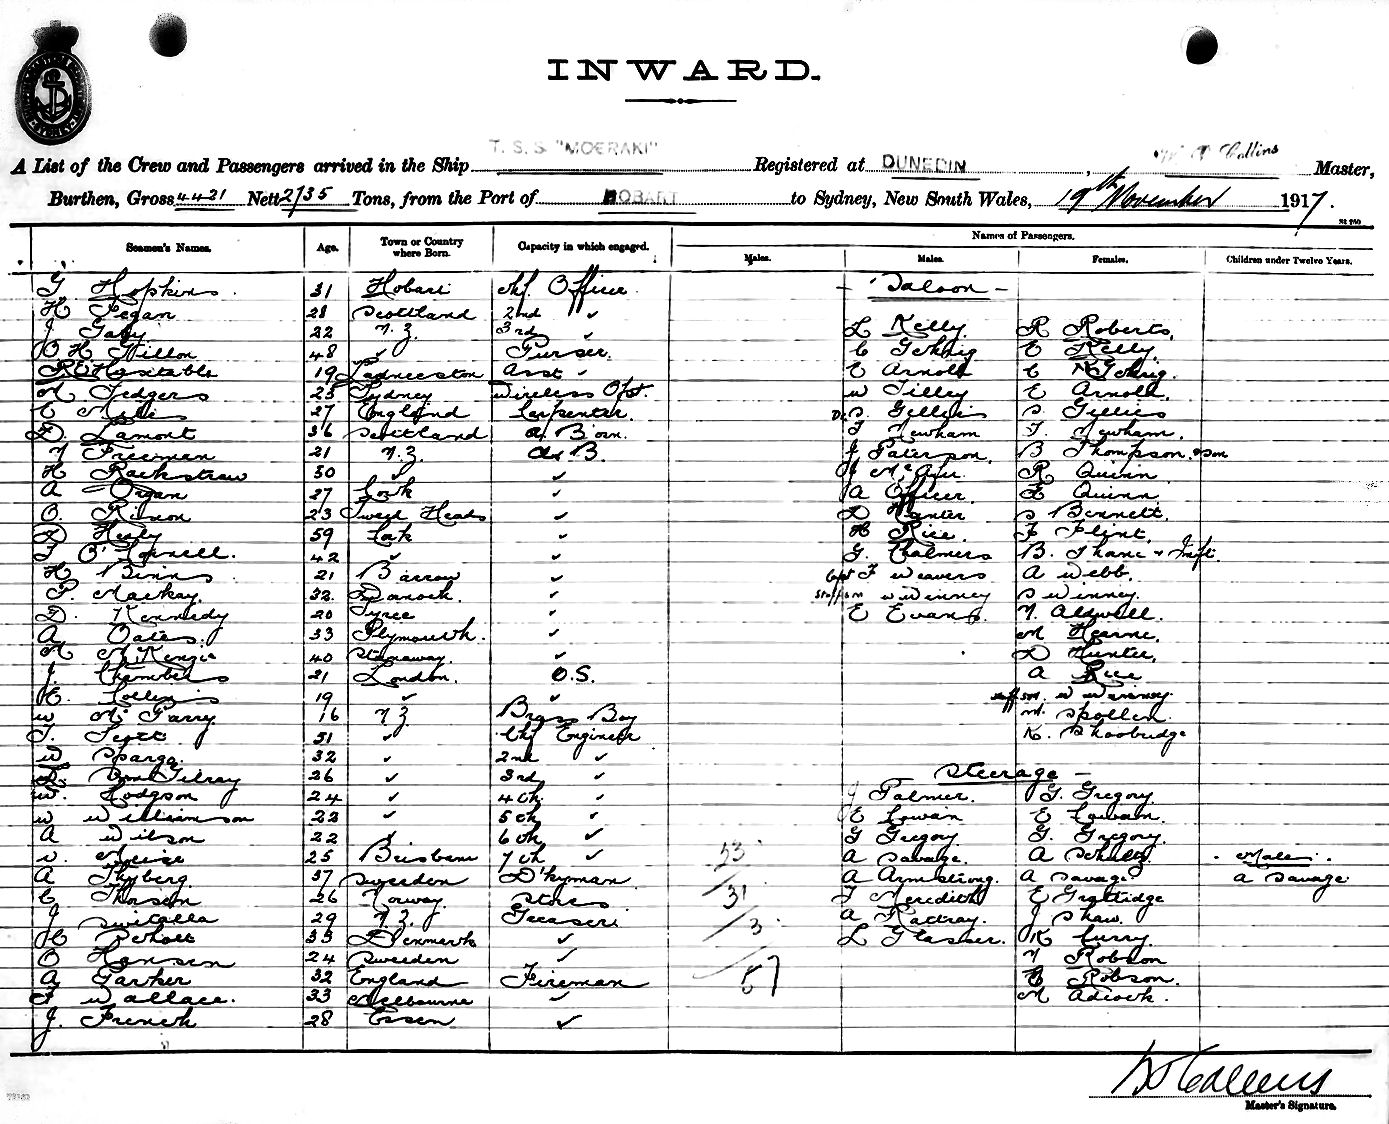 INWARD.
A List of the Crew and Passengers arrived in the Ship T. S. S "MOERAKI" Registered at DUNEDIN, Collins Master,
Burthen, Gross 4421 Nett 2135 Tons, from the Port of HOBART to Sydney, New South Wales, 19th November 1917.
Names of Passengers.
Seamen's Names. Age. Town or Country where Born. Capacity in which engaged. Males. Males. Females. Children under Twelve Years.
G Hopkins. 31 Hobart Chf Officer - Saloon -
H Fegan 28 Scottland 2nd ✓
J Gaby 22 N.Z 3rd ✓ L Kelly. R Roberts,
O H Dillon 48 ✓ Purser. C Gehrig E Kelly.
R E Huxtable 19 Launceston Asst ✓ E Arnold C Gehrig.
M Jedgers 25 Sydney Wireless Opt. W Tilley E Arnold.
C Mills 27 England Carpenter. Dr. S. Gillies S Gillies
D. Lamont 36 Scottland A. B. Bosn. F Newham F. Newham.
N Freeman 21 N.Z. A. B. J Paterson. B Thompson. & Son
H Rackstraw 30 ✓ ✓ J McAfee. R Quinn
A Organ 27 Cork ✓ A Officer. L Quinn
O. Rixon 23 Tweed Heads ✓ D Hunter S Bennett.
D Healy 59 Cork ✓ H Rice. F Flint.
T O'Connell. 42 ✓ ✓ G. Chalmers B. Thane & Inft.
H Binns 21 Barrow ✓ Capt F Weavers A Webb.
P. Mackay. 32. ✓ Staff Sm W Winney S Winney.
D. Kennedy 20 Tyree ✓ E Evans. N Aldwell.
A Oates. 33 Plymouth. ✓ M Hearne.
M McKenzie 40 Stanaway. ✓ D Hunter.
J. Chambers 21 London. O.S. A Rice
H. Collins 19 ✓ ✓ Staff Sm. W Winney
W McGarry 16 N Z Brass Boy M. Spollen.
T. Scott 51 ✓ Chf Engineer K. Shoobridge
W Spargo. 32 ✓ 2nd ✓
D. McGilray 26 ✓ 3rd ✓ Steerage -
W. Hodgson 24 ✓ 4th ✓ J Palmer. G. Gregory.
W Williamson 22 ✓ 5th ✓ E Cowan E Cowan.
A Wilson 22 ✓ 6th ✓ G Gregory G. Gregory
W. 25 Brisbane 7th ✓ 23 A Savage. A Schultz. - Males -
A Thyberg 37 Sweeden D'kyman A Armstrong. A Savage A Savage
C Thorsen 26 Norway Stores 31 F Meredith E Grattidge
J Switalla 29 N.Z. Greaser 3 A Rattray. J Shaw.
H Scholt 33 Denmark ✓ L Glasser. K Curry.
O Hansen 24 Sweeden ✓ N Robson
A Parker 32 England Fireman 57 E Robson.
F Wallace. 33 Melbourne ✓ M Adcock.
J. French 28 Essen ✓
Collins
Master's Signature.